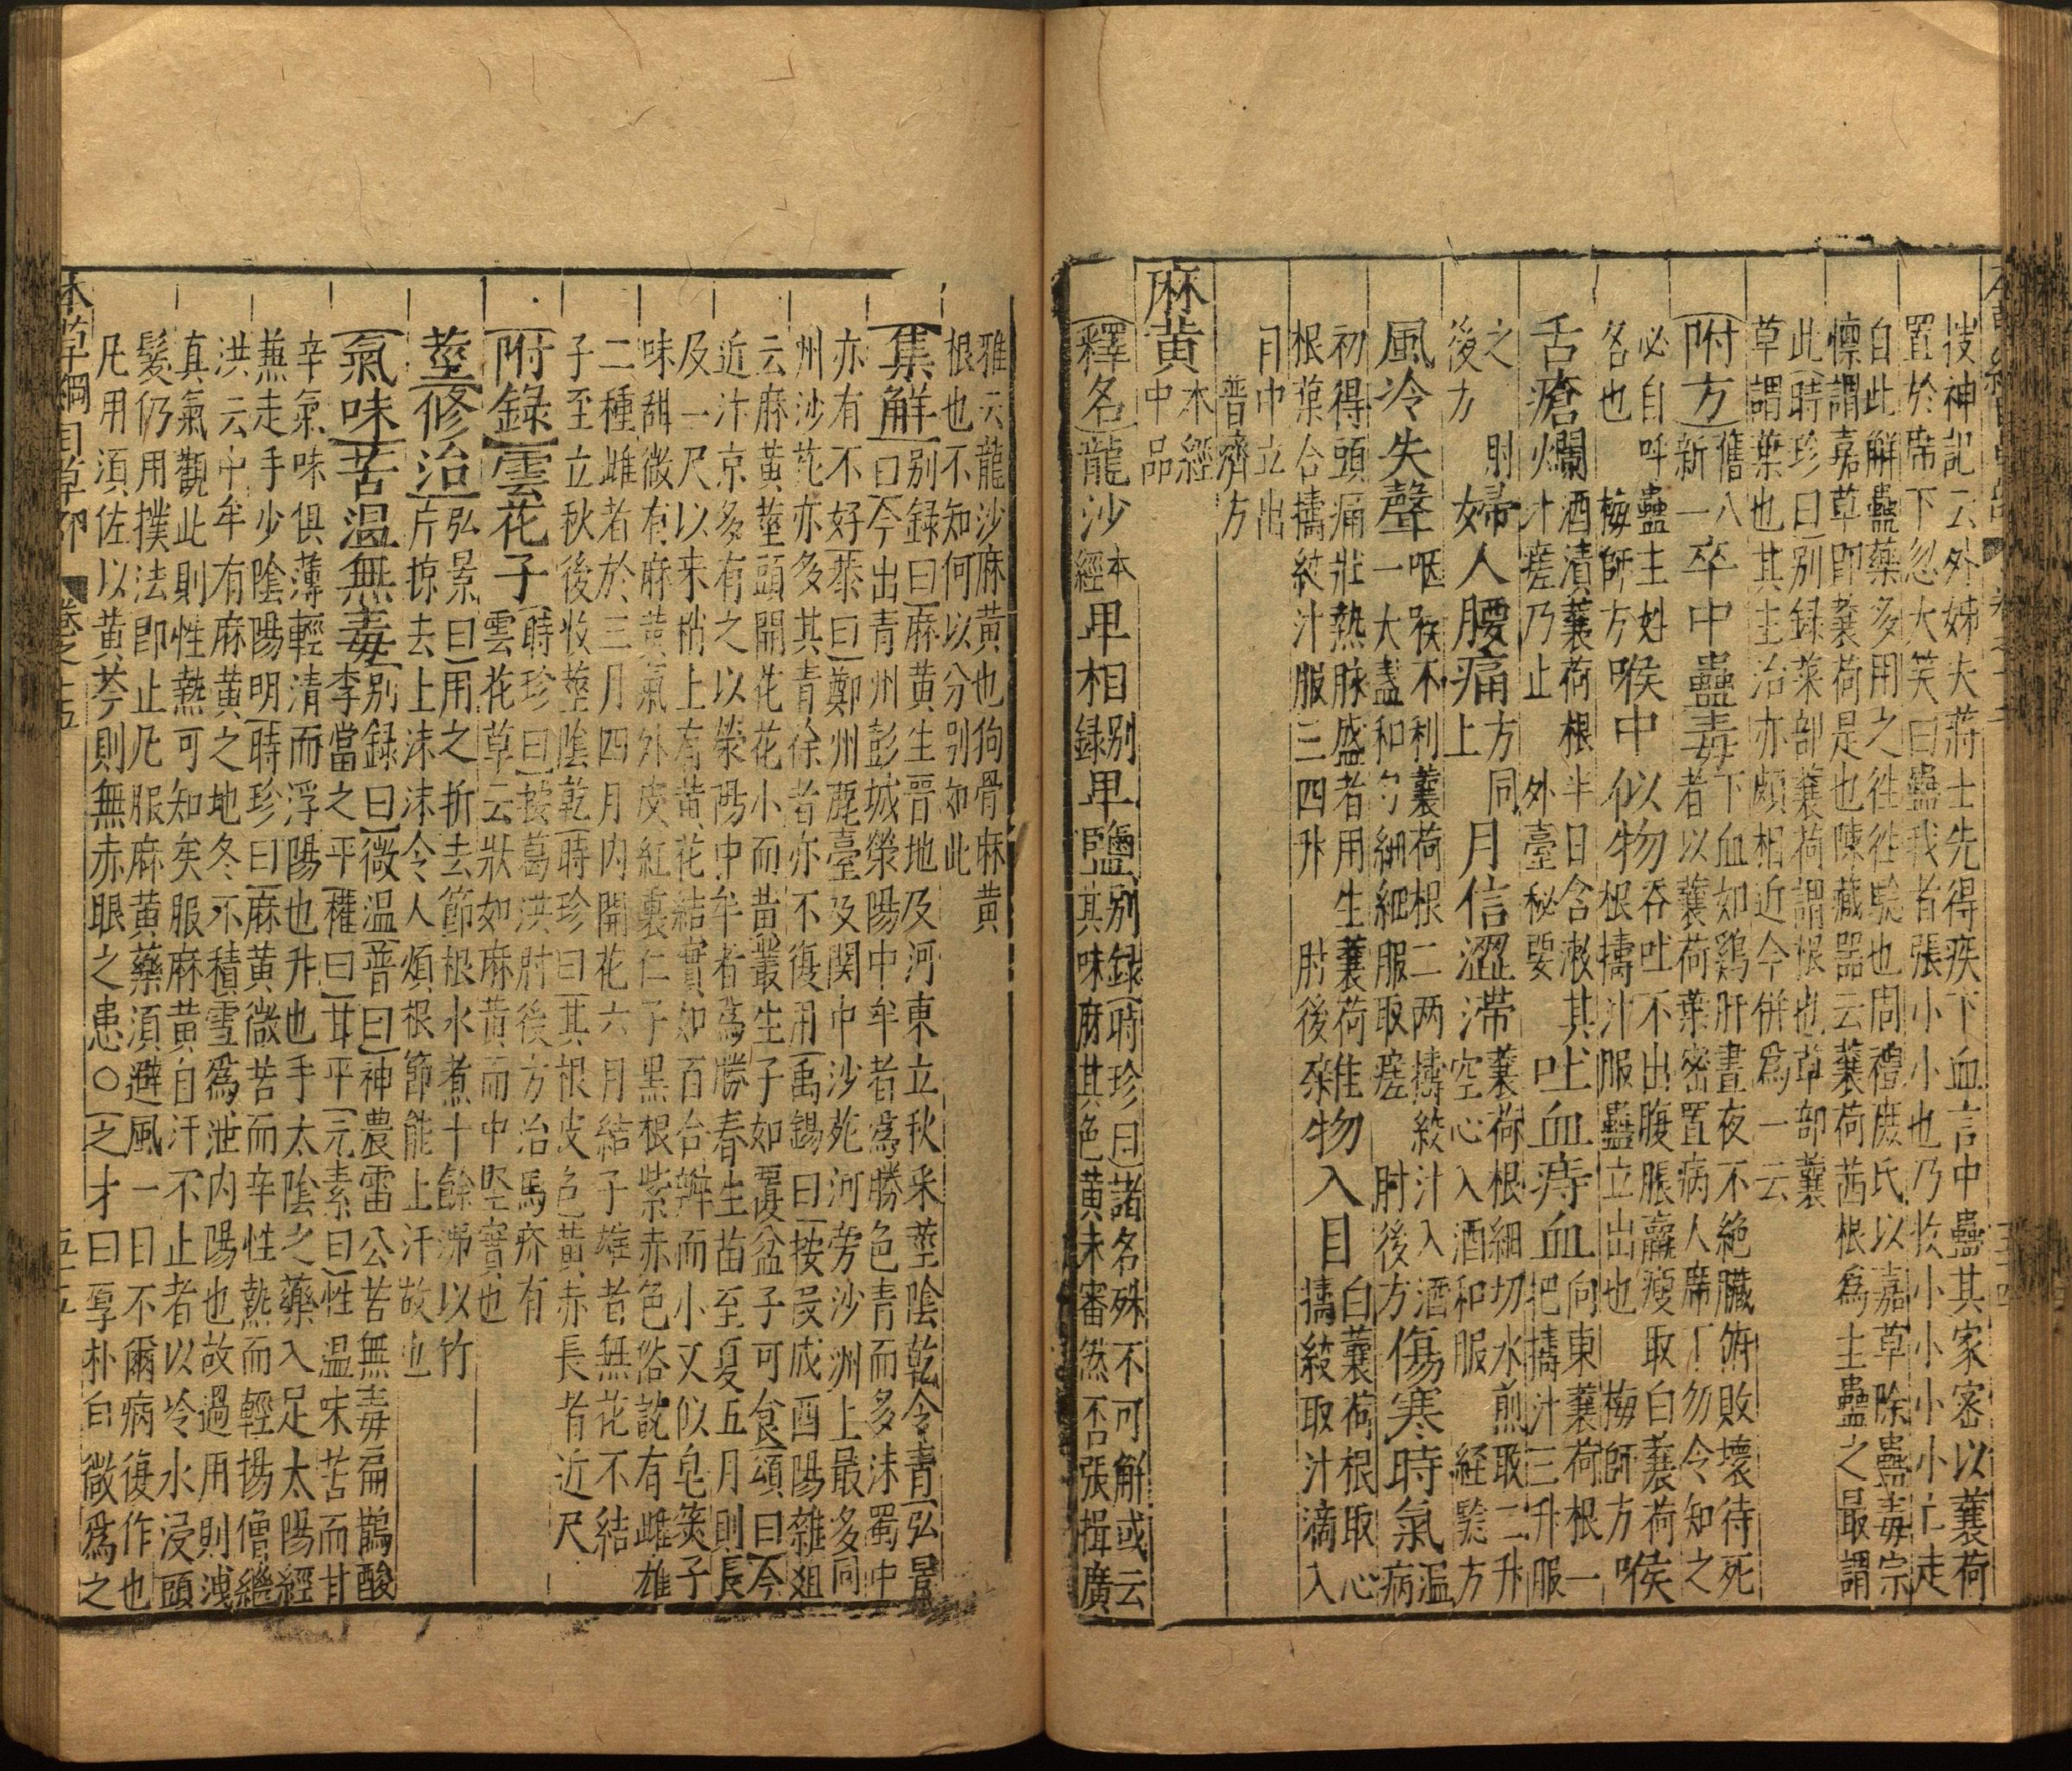 搜神記云外姊夫蔣士先得疾下血言中蠱其家密以蘘荷
置於席下忽大笑曰蠱我者張小小也乃收小小小小亡走
自此解蠱藥多用之徃徃驗也周禮庻氏以嘉草除蠱毒宗
懔謂嘉草即蘘荷是也陳藏器云蘘荷茜根爲主蠱之最謂
此時珍曰别録菜部蘘荷謂根也草部蘘
草謂葉也其主治亦頗相近今併爲一云
附方舊八新一卒中蠱毒下血如鷄肝晝夜不絶臟腑敗壞待死者以蘘荷葉密置病人席下勿令知之
必自呼蠱主姓名也梅師方喉中似物吞吐不出腹脹羸瘦取白蘘荷根擣汁服蠱立出也梅師方喉
舌瘡爛酒漬蘘荷根半日含漱其汁瘥乃止外臺秘要吐血痔血向東蘘荷根一把擣汁三升服
之肘後方婦人腰痛方同上月信澀滯蘘荷根細切水煎取二升空心入酒和服経驗方
風冷失聲咽喉不利蘘荷根二两擣絞汁入酒一大盞和勻細細服取瘥肘後方傷寒時氣温病
初得頭痛壯熱脉盛者用生蘘荷根葉合擣絞汁服三四升肘後雜物入目白蘘荷根取心擣絞取汁滴入
目中立出普濟方
麻黄本經中品
釋名龍沙本經卑相别録卑鹽别録時珍曰諸名殊不可解或云其味麻其色黄未審然否張揖廣
雅云龍沙麻黄也狗骨麻黄
根也不知何以分别如此
集解别録曰麻黄生晋地及河東立秋采莖陰乾令青弘景曰今出青州彭城滎陽中牟者爲勝色青而多沫蜀中
亦有不好恭曰鄭州鹿臺及関中沙苑河旁沙洲上最多同
州沙苑亦多其青徐者亦不復用禹錫曰按段成酉陽雜爼
云麻黄莖頭開花花小而黄叢生子如覆盆子可食頌曰今
近汴京多有之以滎陽中牟者爲勝春生苗至夏五月則長
及一尺以来梢上有黄花結實如百合瓣而小又似皂莢子
味甜微有麻黄氣外皮紅裏仁子黑根紫赤色俗說有雌雄
二種雌者於三月四月内開花六月結子雄者無花不結
子至立秋後收莖陰乾時珍曰其根皮色黄赤長者近尺
附録雲花子時珍曰按葛洪肘後方治馬疥有雲花草云狀如麻黄而中堅實也
莖修治弘景曰用之折去節根水煮十餘沸以竹片掠去上沫沫令人煩根節能上汗故也
氣味苦温無毒别録曰微温普曰神農雷公苦無毒扁鵲酸李當之平權曰甘平元素曰性温味苦而甘
辛氣味俱薄輕清而浮陽也升也手太陰之藥入足太陽經
蕪走手少陰陽明時珍曰麻黄微苦而辛性熱而輕揚僧繼
洪云中牟有麻黄之地冬不積雪爲泄内陽也故過用則洩
真氣觀此則性熱可知矣服麻黄自汗不止者以冷水浸頭
髪仍用撲法即止凡服麻黄藥湏避風一日不爾病復作也
凡用湏佐以黄芩則無赤眼之患○之才曰厚朴白微爲之
本草綱目草部 卷之十五 五十五